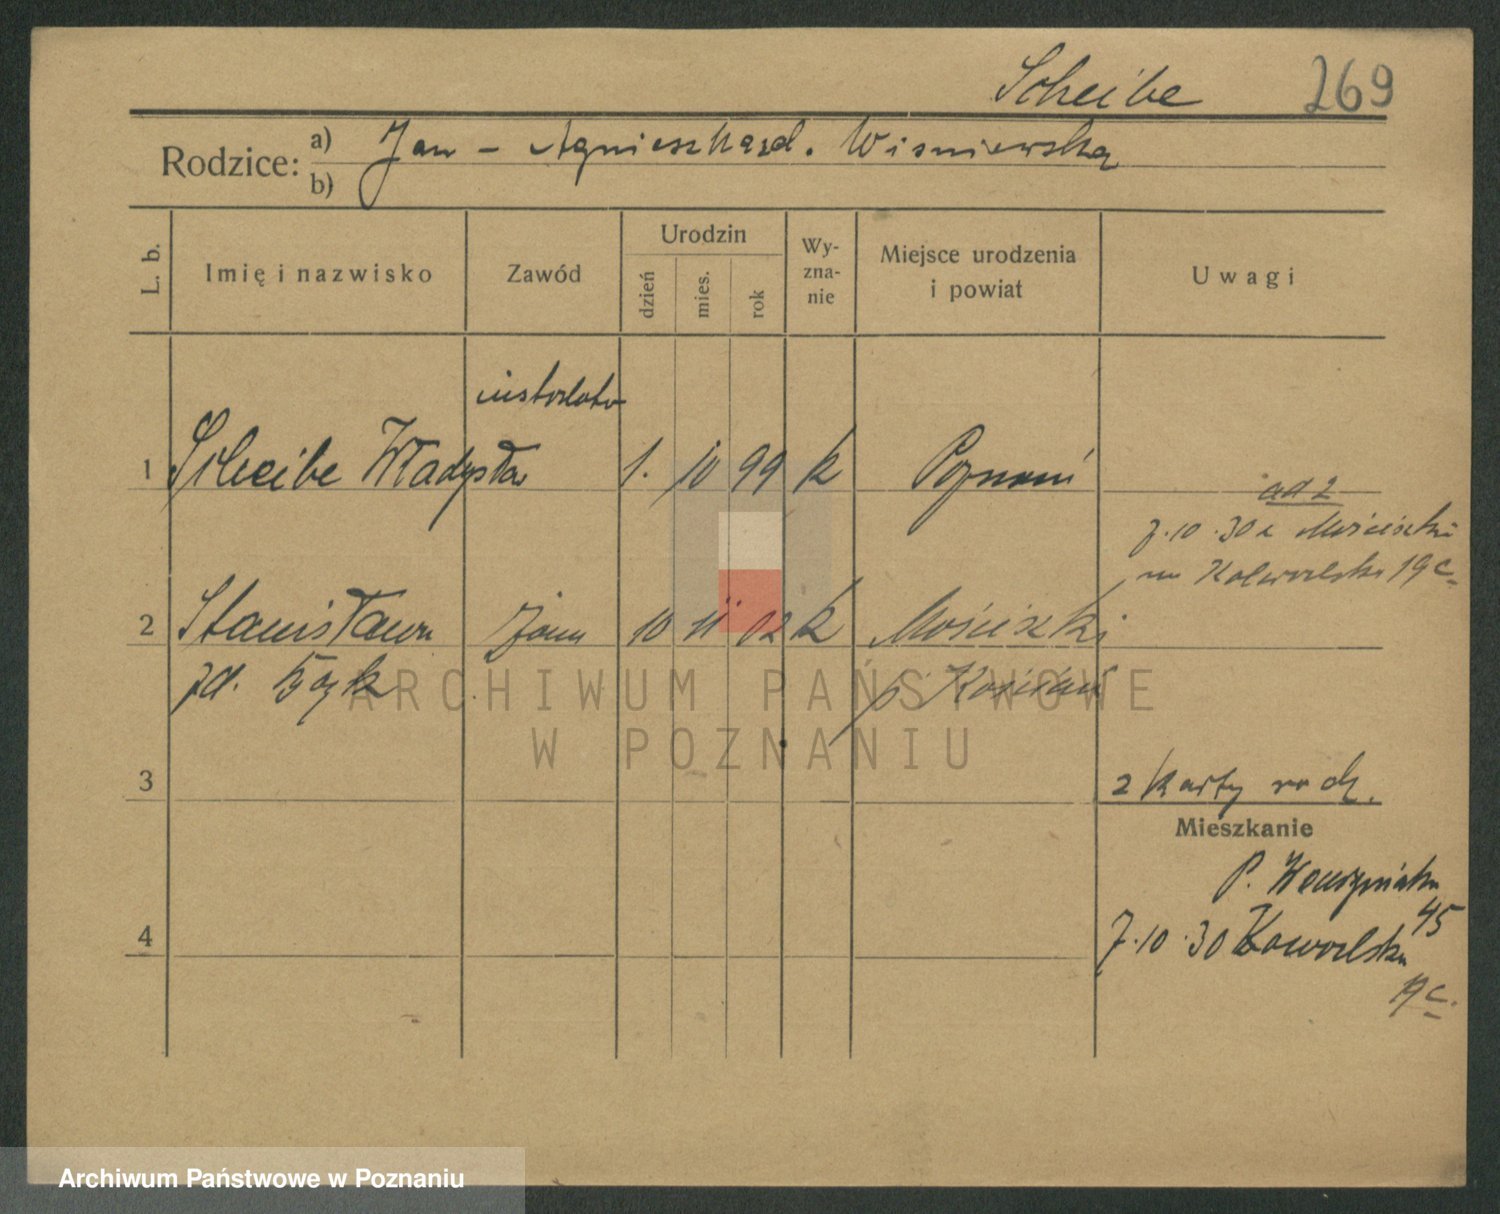 Scheibe 269
Rodzice: a) Jan – Agnieszka zd. Wiśniewska
b)
L. b. Imię i nazwisko Zawód Urodzin dzień mies. rok Wy-zna-nie Miejsce urodzenia i powiat Uwagi
instalator
1 Scheibe Władysław 1. 10 99 k Poznań
ad 2
7.10.30 z Mościszki
na Kalwaelska 19c
2 Stanisława żona 10 11 02 k Mościszki
zd. p. Kościan
ARCHIWUM PAŃSTWOWE
W POZNANIU
3 2 karty rodz.
Mieszkanie
P. 45
4 7.10.30
19c.
Archiwum Państwowe w Poznaniu